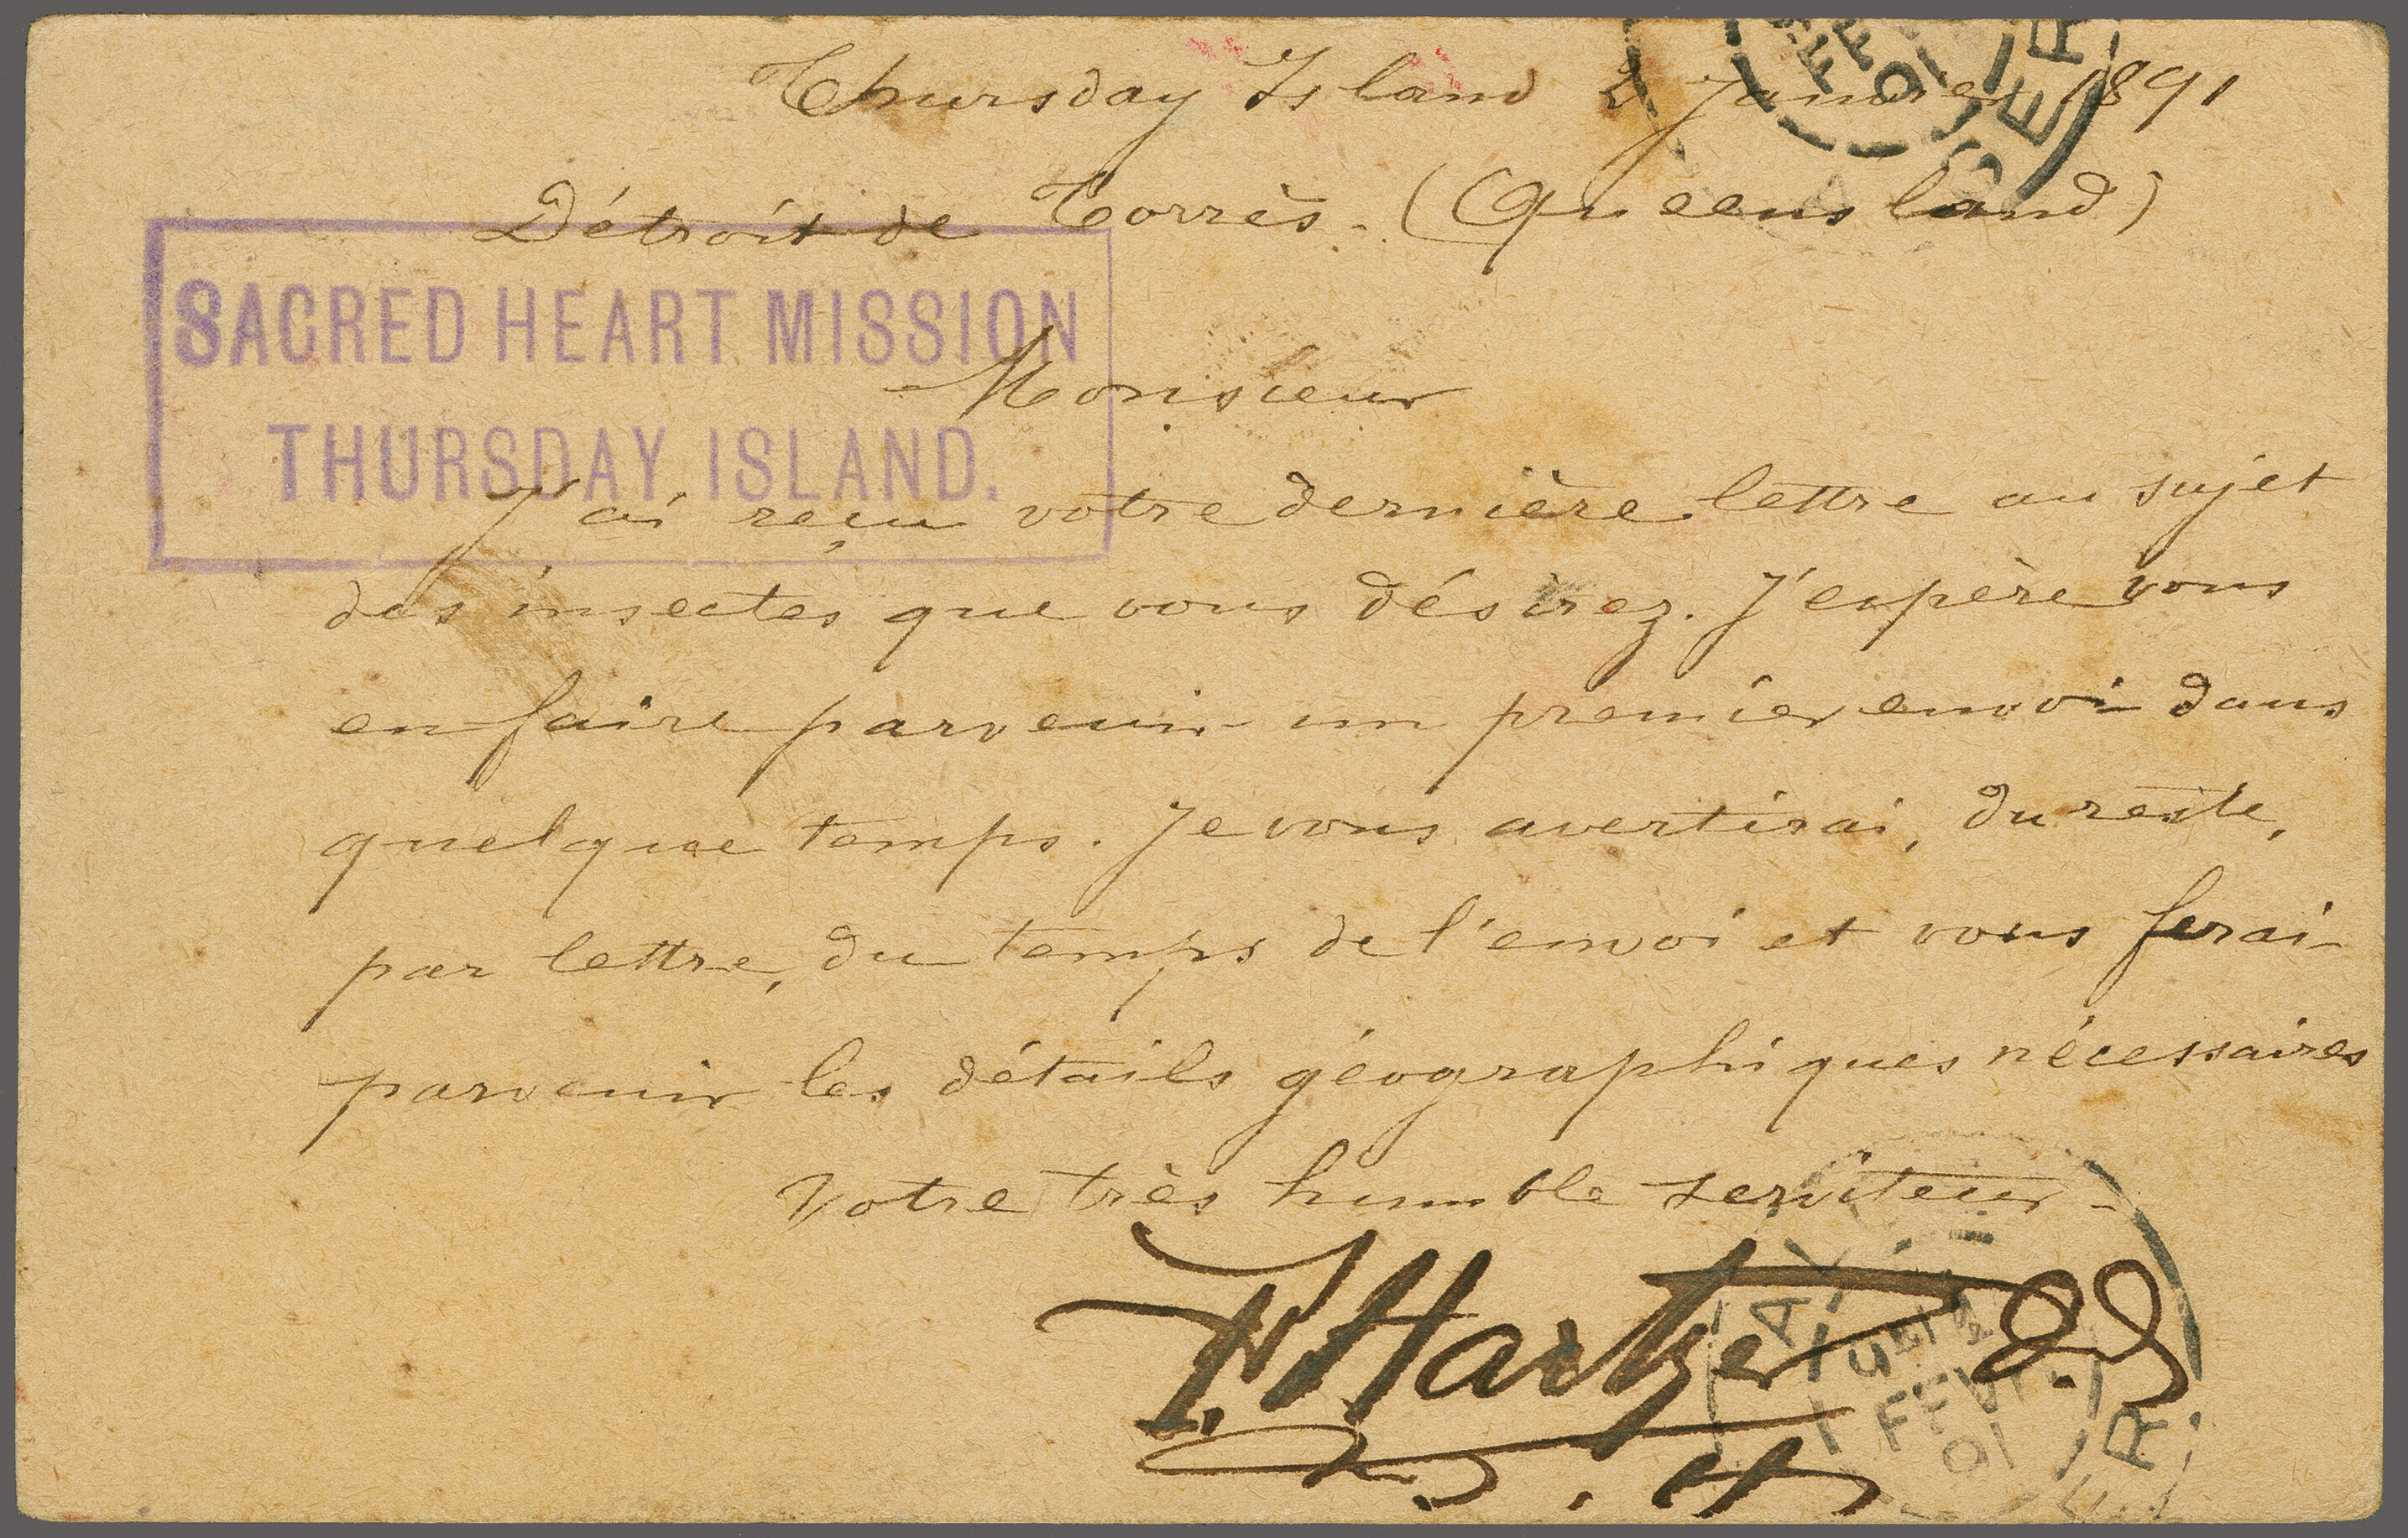 Thursday Island 2 Janvier 1891
Détroit de Torrès. (Queensland)
SACRED HEART MISSION
THURSDAY ISLAND.
Monsieur
J'ai reçu votre dernière lettre au sujet
des insectes que vous désirez. J'espère vous
en faire parvenir un premier envoi dans
quelque temps. Je vous avertirai, du reste,
par lettre, du temps de l'envoi et vous ferai
parvenir les détails géographiques nécessaires
Votre très humble serviteur -
F. Hartzer
FEVR
91
ALGER